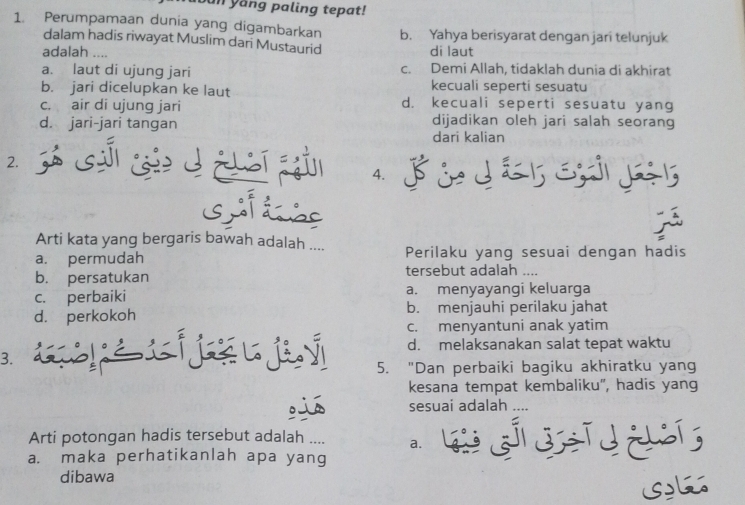 yang paling tepat!
1. Perumpamaan dunia yang digambarkan
dalam hadis riwayat Muslim dari Mustaurid
adalah ....
a. laut di ujung jari
b. jari dicelupkan ke laut
c. air di ujung jari
d. jari-jari tangan
2. اَللّٰهُمَّ أَصْلِحْ لِي دِيْنِيْ الَّذِيْ هُوَ
عِصْمَةُ أَمْرِيْ
Arti kata yang bergaris bawah adalah ....
a. permudah
b. persatukan
c. perbaiki
d. perkokoh
3. إِلَّا مِثْلُ مَا يَجْعَلُ أَحَدُكُمْ إِصْبَعَهُ
هٰذِهِ
Arti potongan hadis tersebut adalah ....
a. maka perhatikanlah apa yang
dibawa
b. Yahya berisyarat dengan jari telunjuk
di laut
c. Demi Allah, tidaklah dunia di akhirat
kecuali seperti sesuatu
d. kecuali seperti sesuatu yang
dijadikan oleh jari salah seorang
dari kalian
4. وَاجْعَلِ الْمَوْتَ رَاحَةً لِي مِنْ كُلِّ
شَرٍّ
Perilaku yang sesuai dengan hadis
tersebut adalah ....
a. menyayangi keluarga
b. menjauhi perilaku jahat
c. menyantuni anak yatim
d. melaksanakan salat tepat waktu
5. "Dan perbaiki bagiku akhiratku yang
kesana tempat kembaliku", hadis yang
sesuai adalah ....
a. وَ أَصْلِحْ لِي آخِرَتِيْ الَّتِيْ فِيْهَا
مَعَادِي